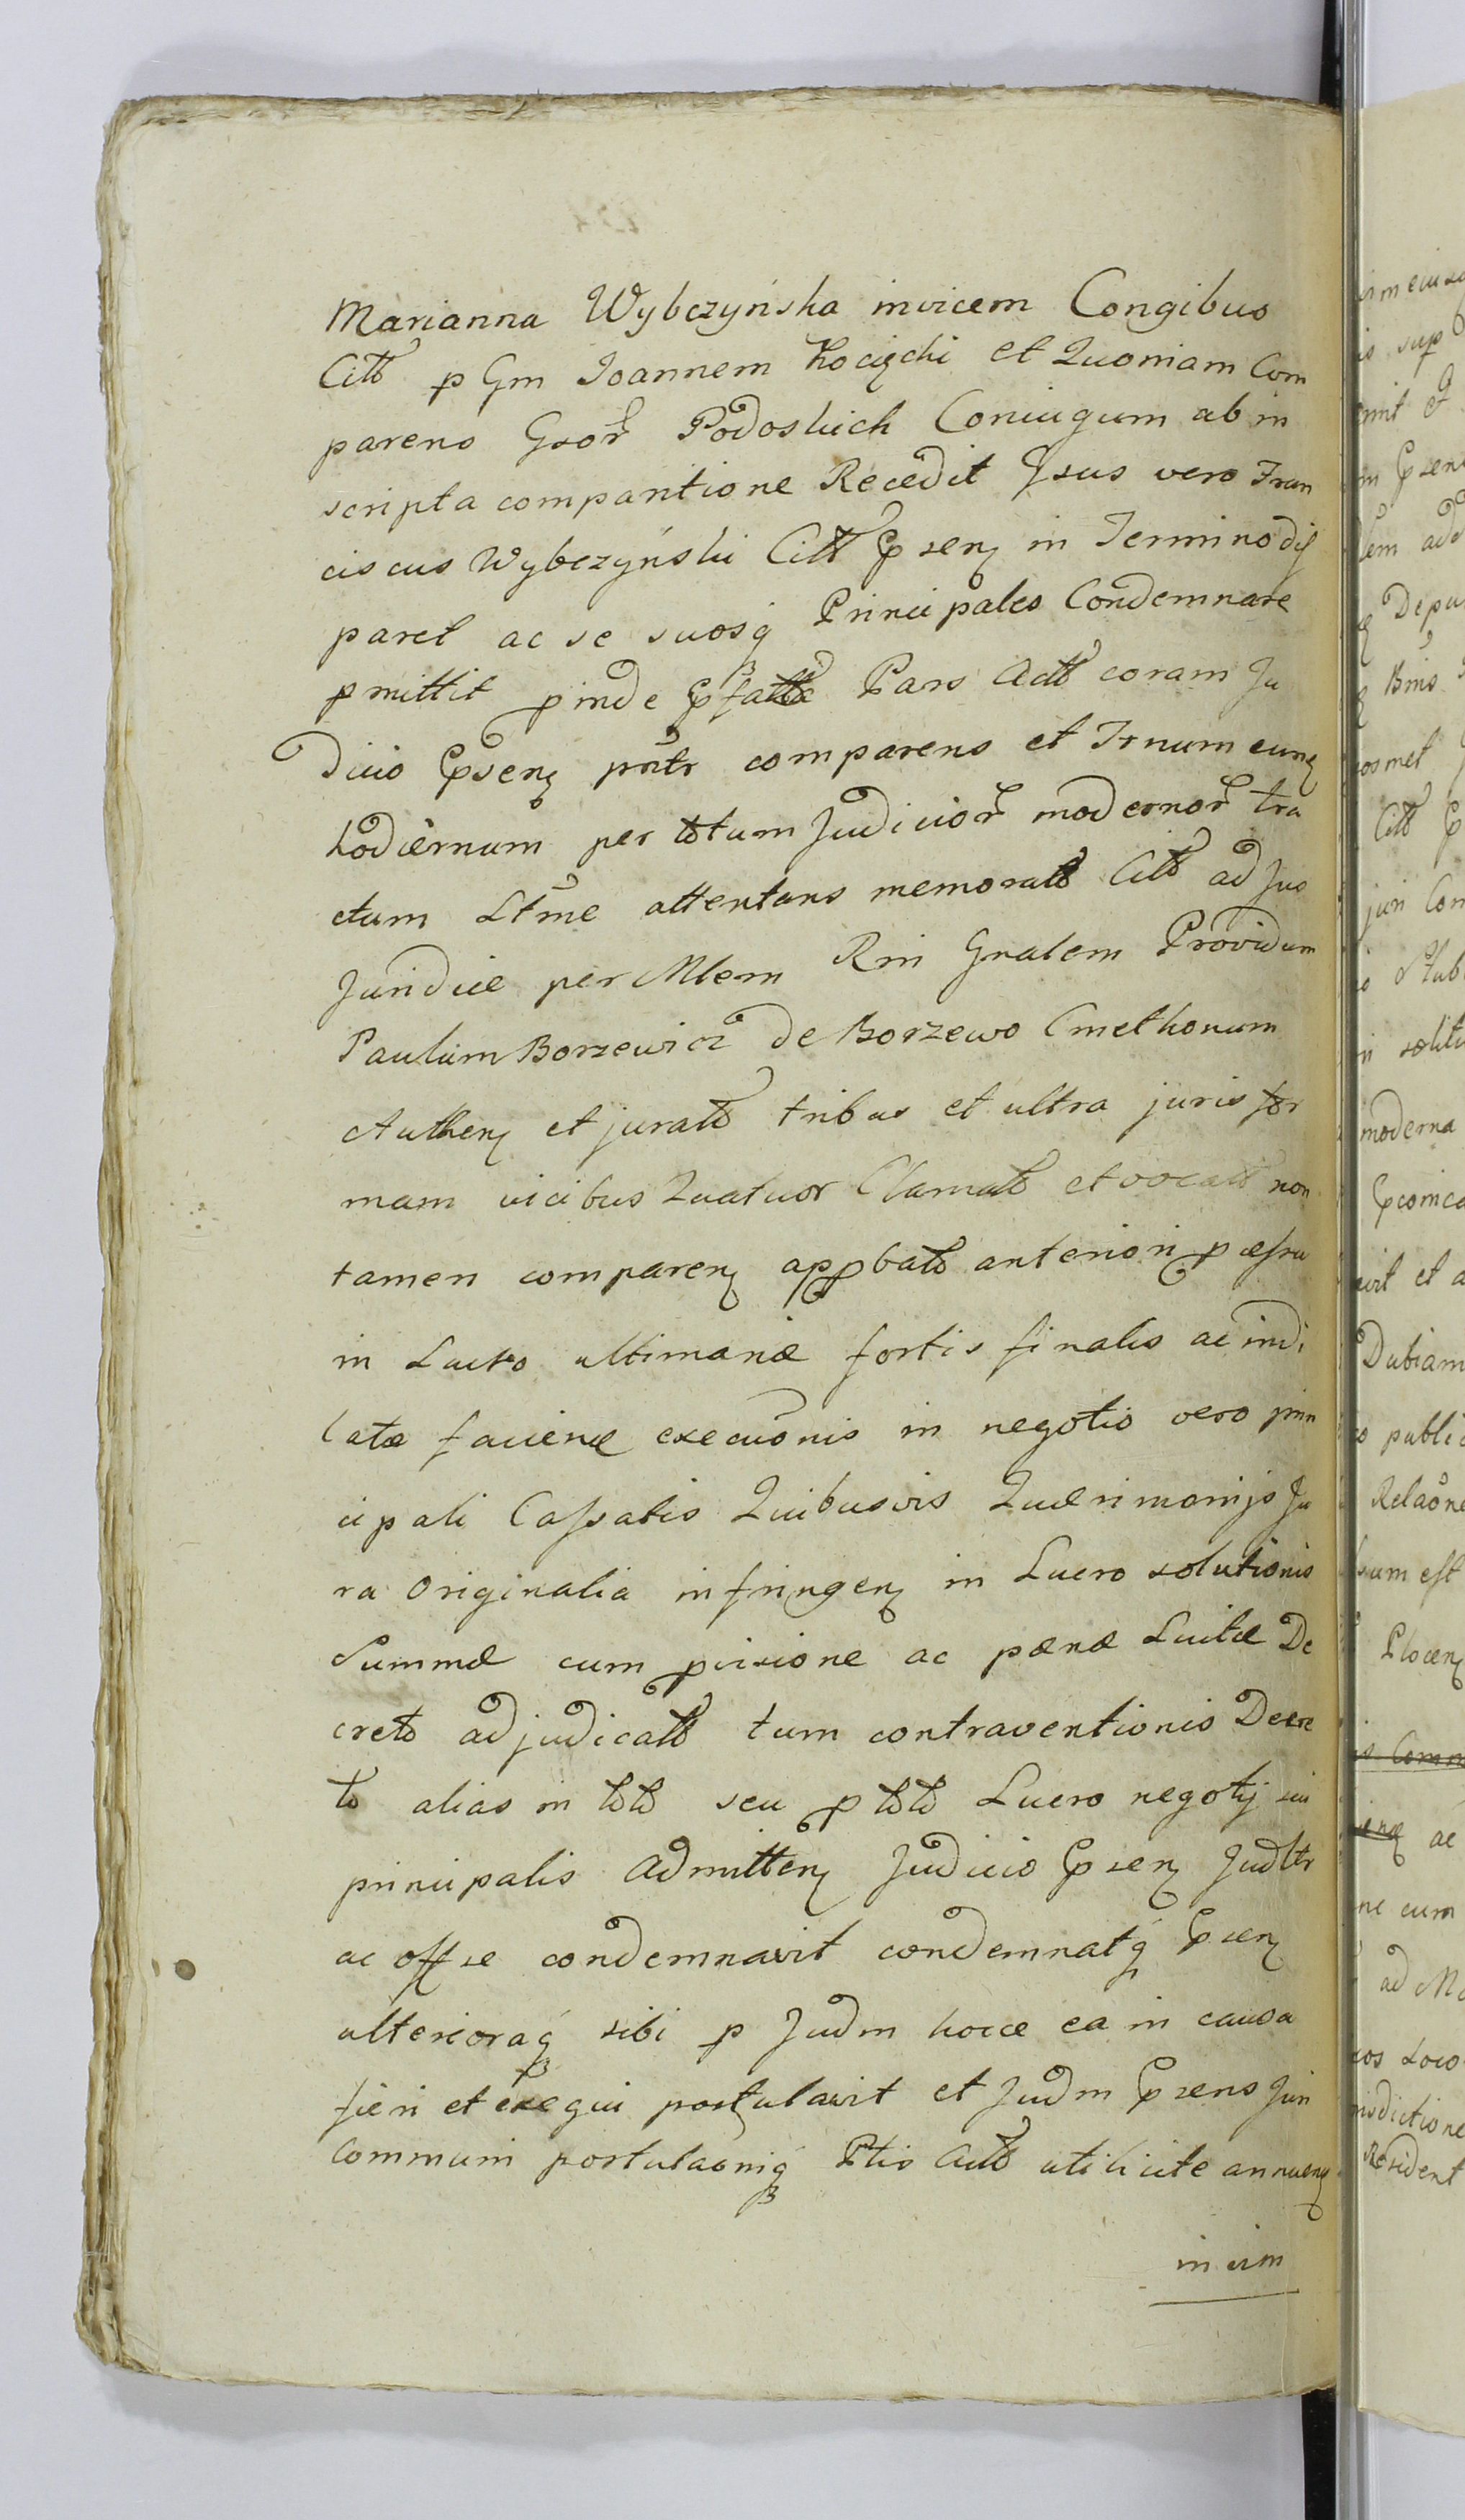 Marianna Wybczyńska invicem Congibus
Citt p Gm Joannem Kocięcki et Quoniam Com
parens Gsor Podoskich Coniugum ab in
scripta comparitione Recedit Gsus vero Fran
ciscus Wybczyński Citt Psenz in Termino dis
paret ac se suosq Principales Condemnare
pmittit pinde Pfatta Pars Actt coram Ju
dicio Psenz pntr comparens et Trnum eunz
hodiernum per totum Judicior modernor tra
ctum Ltme attentans memoratt Citt ad Jus
Juridice per Mlem Rni Gnalem Providum
Paulum Borzewicz de Borzewo Cmethonum
Authenz et juratt tribus et ultra juris for
mam vicibus Quatuor Clamatt et vocatt non
tamen comparenz appbatt anteriori
in Lucro ultimariæ fortis finalis ac indi
latæ faciendæ execuonis in negotio vero prin
cipali Cassatis Quibusvis Quærimonijs Ju
ra Originalia infringenz in Lucro solutionis
Summæ cum pvisione ac pænæ Luitæ De
creto adjudicatt tum contraventionis Decre
to alias in toto seu p toto Lucro negotij sui
principalis Admittenz Judicio Psenz Judltr
ac off se condemnavit condemnatq Psenz
ulterioraq sibi p Judm hocce ea in causa
fieri et exequi postulavit et Judm Psens Juri
Communi postulaoniq Ptis Actt utilicite annuenz
in vim